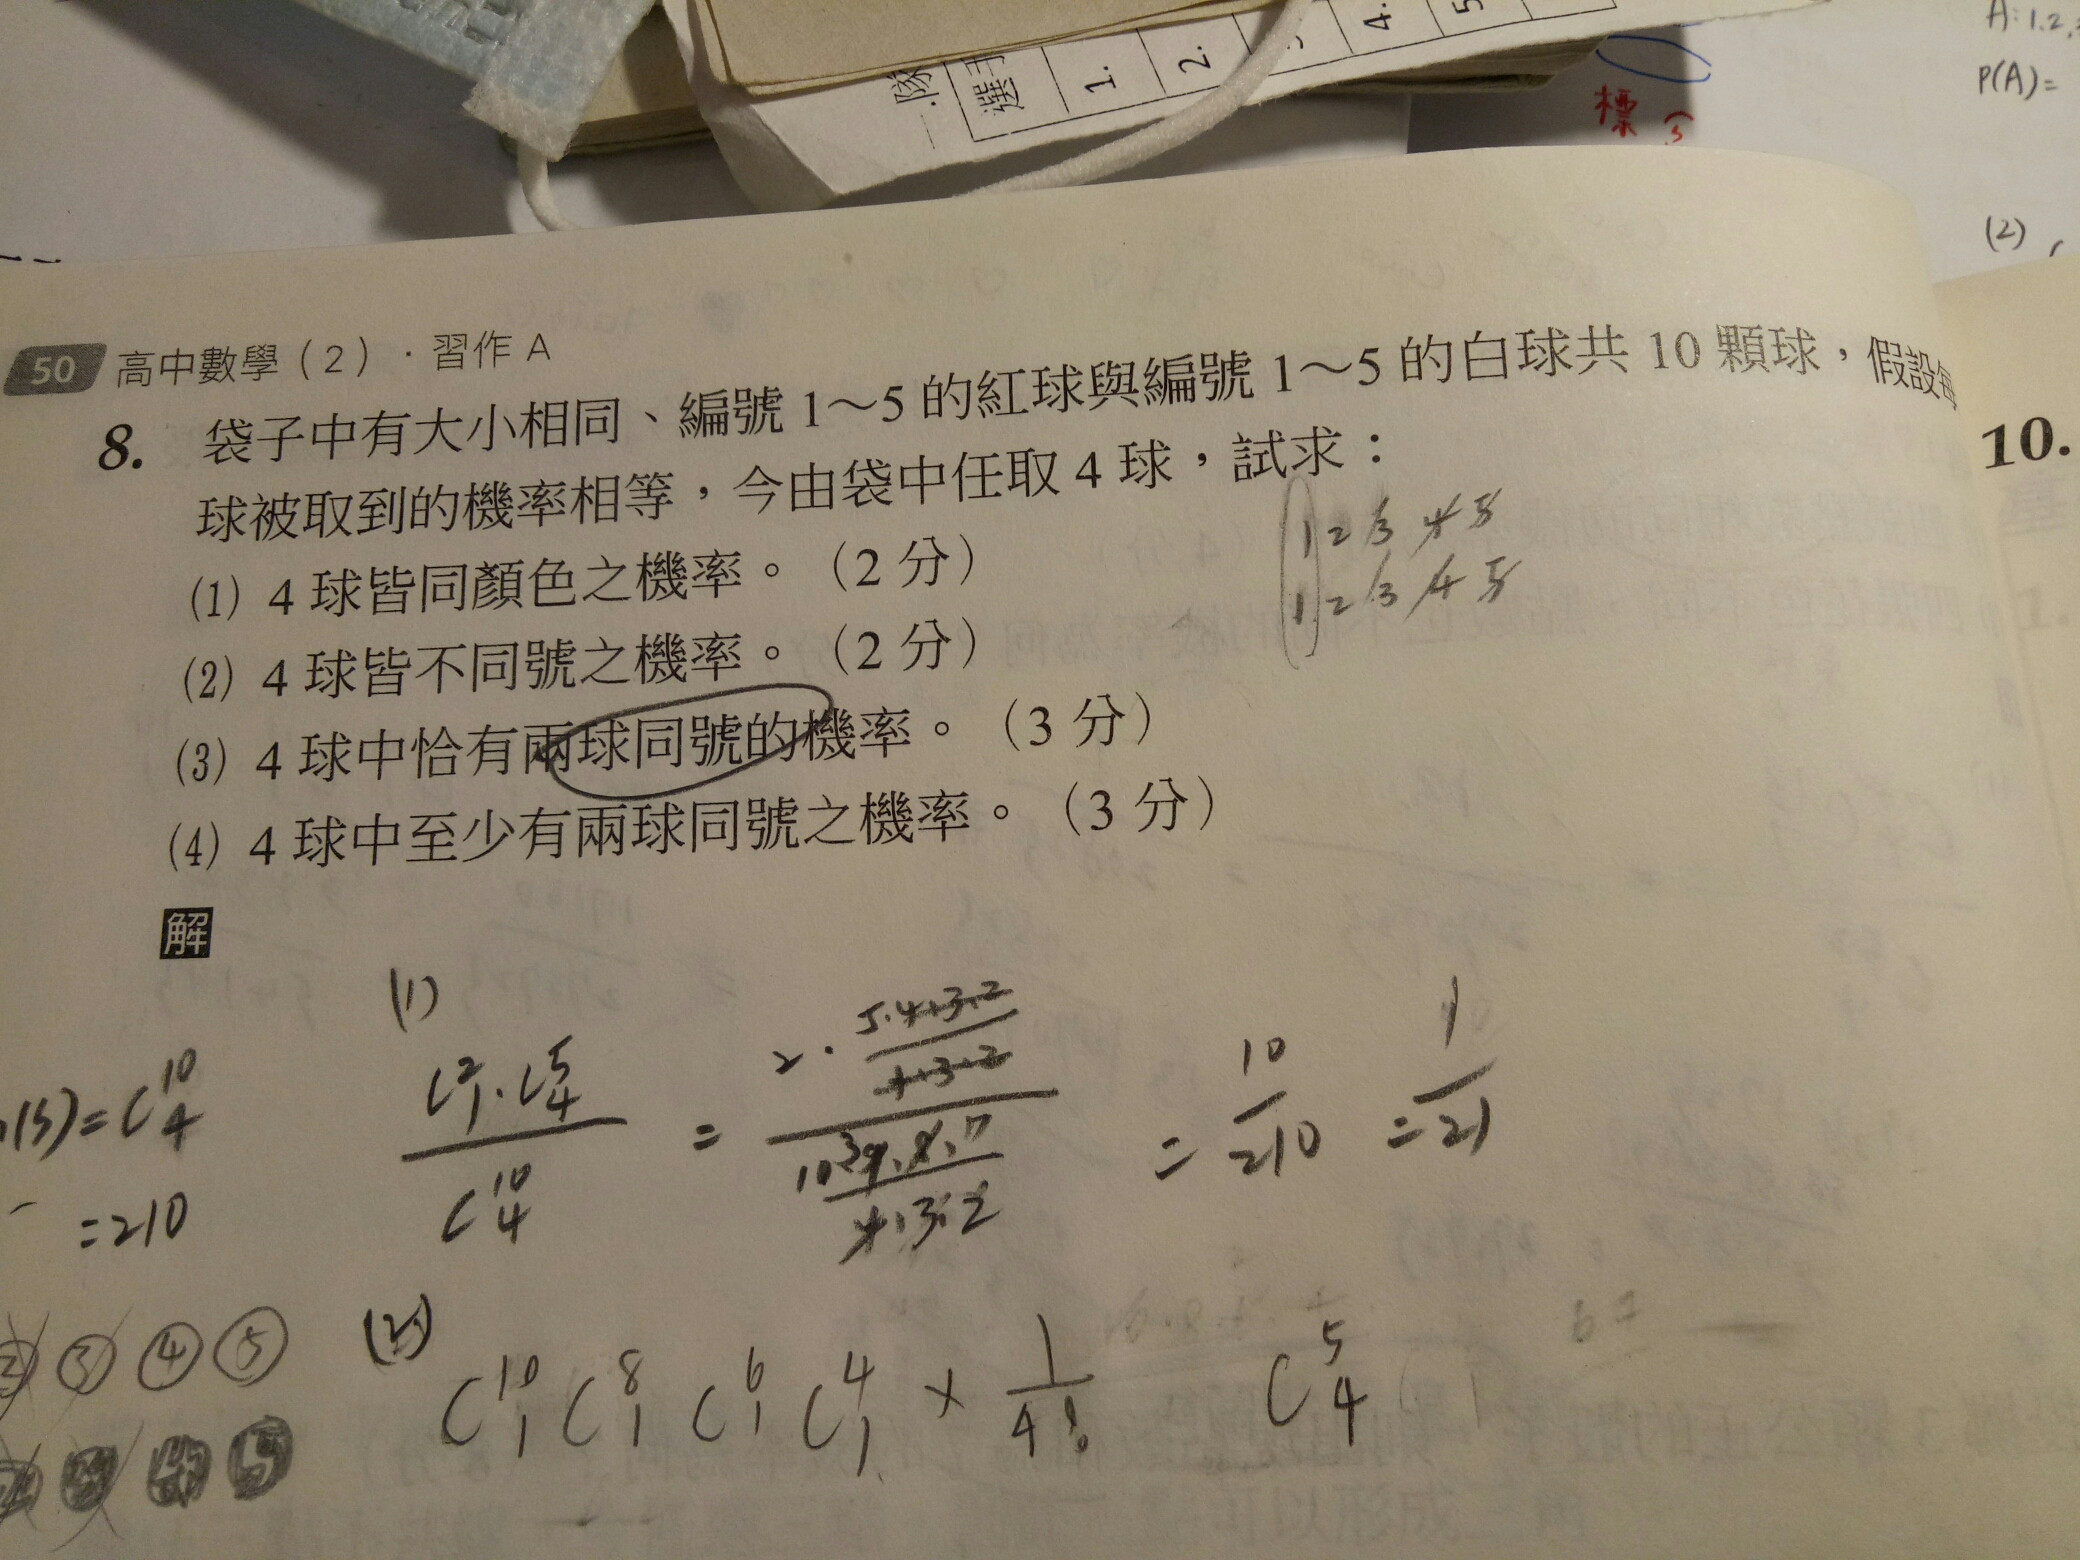 一隊
選手
1.
2.
4.
5
A:1.2,
P(A)=
標
(2)
50 高中數學(2)·習作 A
8. 袋子中有大小相同、編號 1～5 的紅球與編號 1～5 的白球共 10 顆球,假設每
球被取到的機率相等,今由袋中任取 4 球,試求:
(1) 4 球皆同顏色之機率。(2 分)
(2) 4 球皆不同號之機率。(2 分)
(3) 4 球中恰有兩球同號的機率。(3 分)
(4) 4 球中至少有兩球同號之機率。(3 分)
1 2 3 4 5
1 2 3 4 5
10.
解
(1)
n(S)=C^10_4
=210
C^2_1·C^5_4 / C^10_4 = 2·(5·4·3·2 / 4·3·2) / (10·9·8·7 / 4·3·2) = 10/210 = 1/21
(2)
2 3 4 5
C^10_1 C^8_1 C^6_1 C^4_1 × 1/4! C^5_4